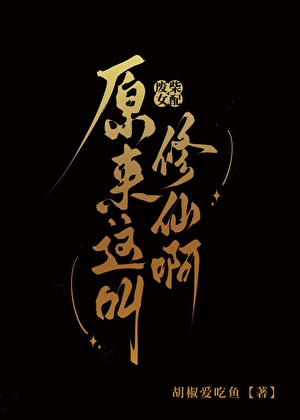 原来这叫
修仙啊
废柴
女配
胡椒爱吃鱼【著】